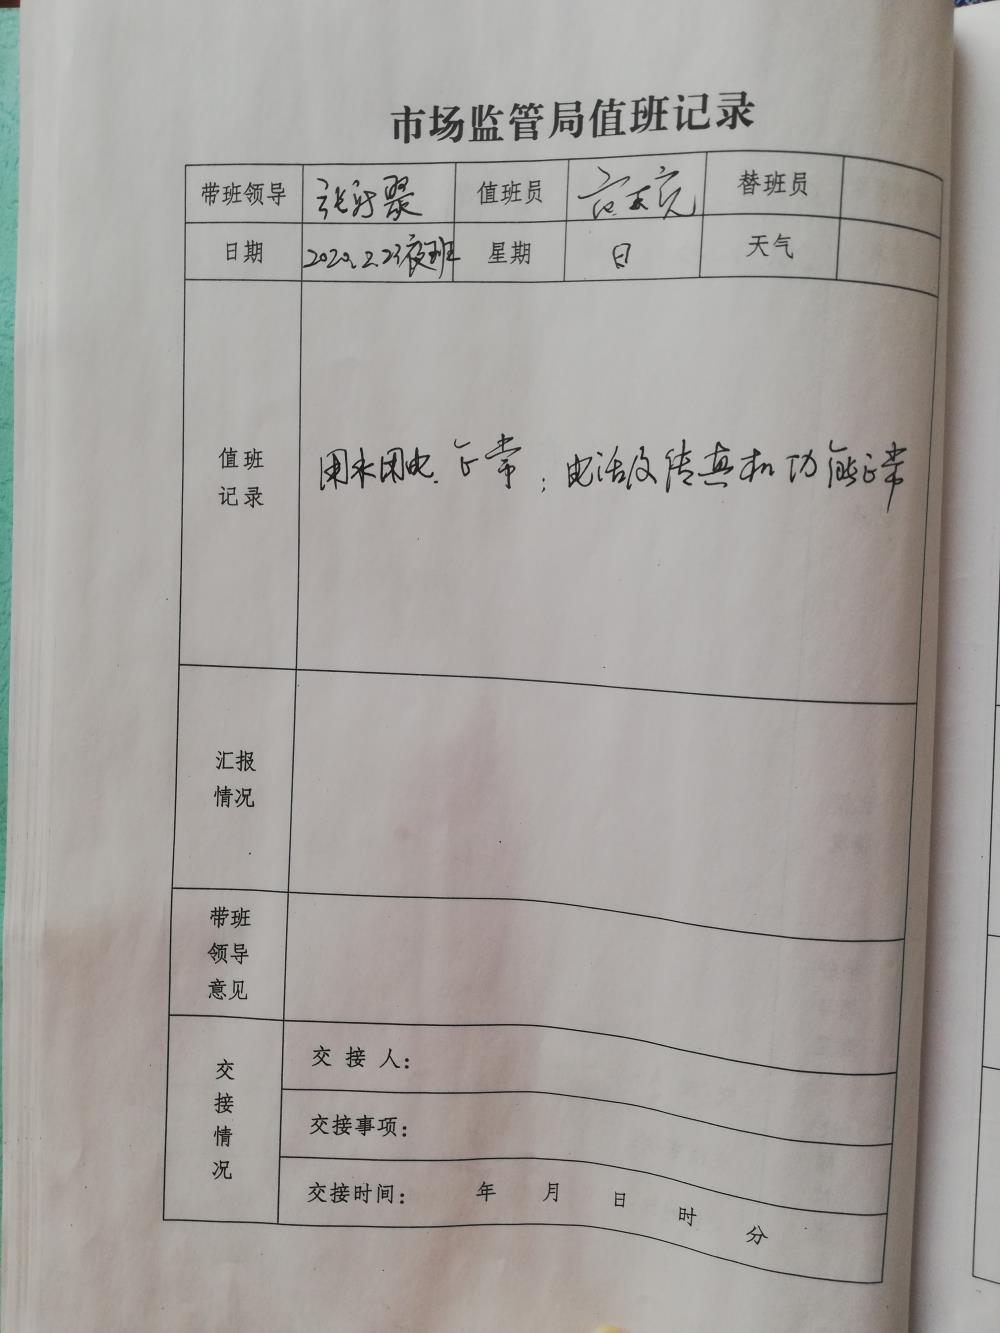 市场监管局值班记录
带班领导 张 值班员 替班员
日期 2020.2.23夜班 星期 日 天气
值班
记录
用水用电正常;电话及传真机功能正常
汇报
情况
带班
领导
意见
交
接
情
况
交接人:
交接事项:
交接时间: 年 月 日 时 分